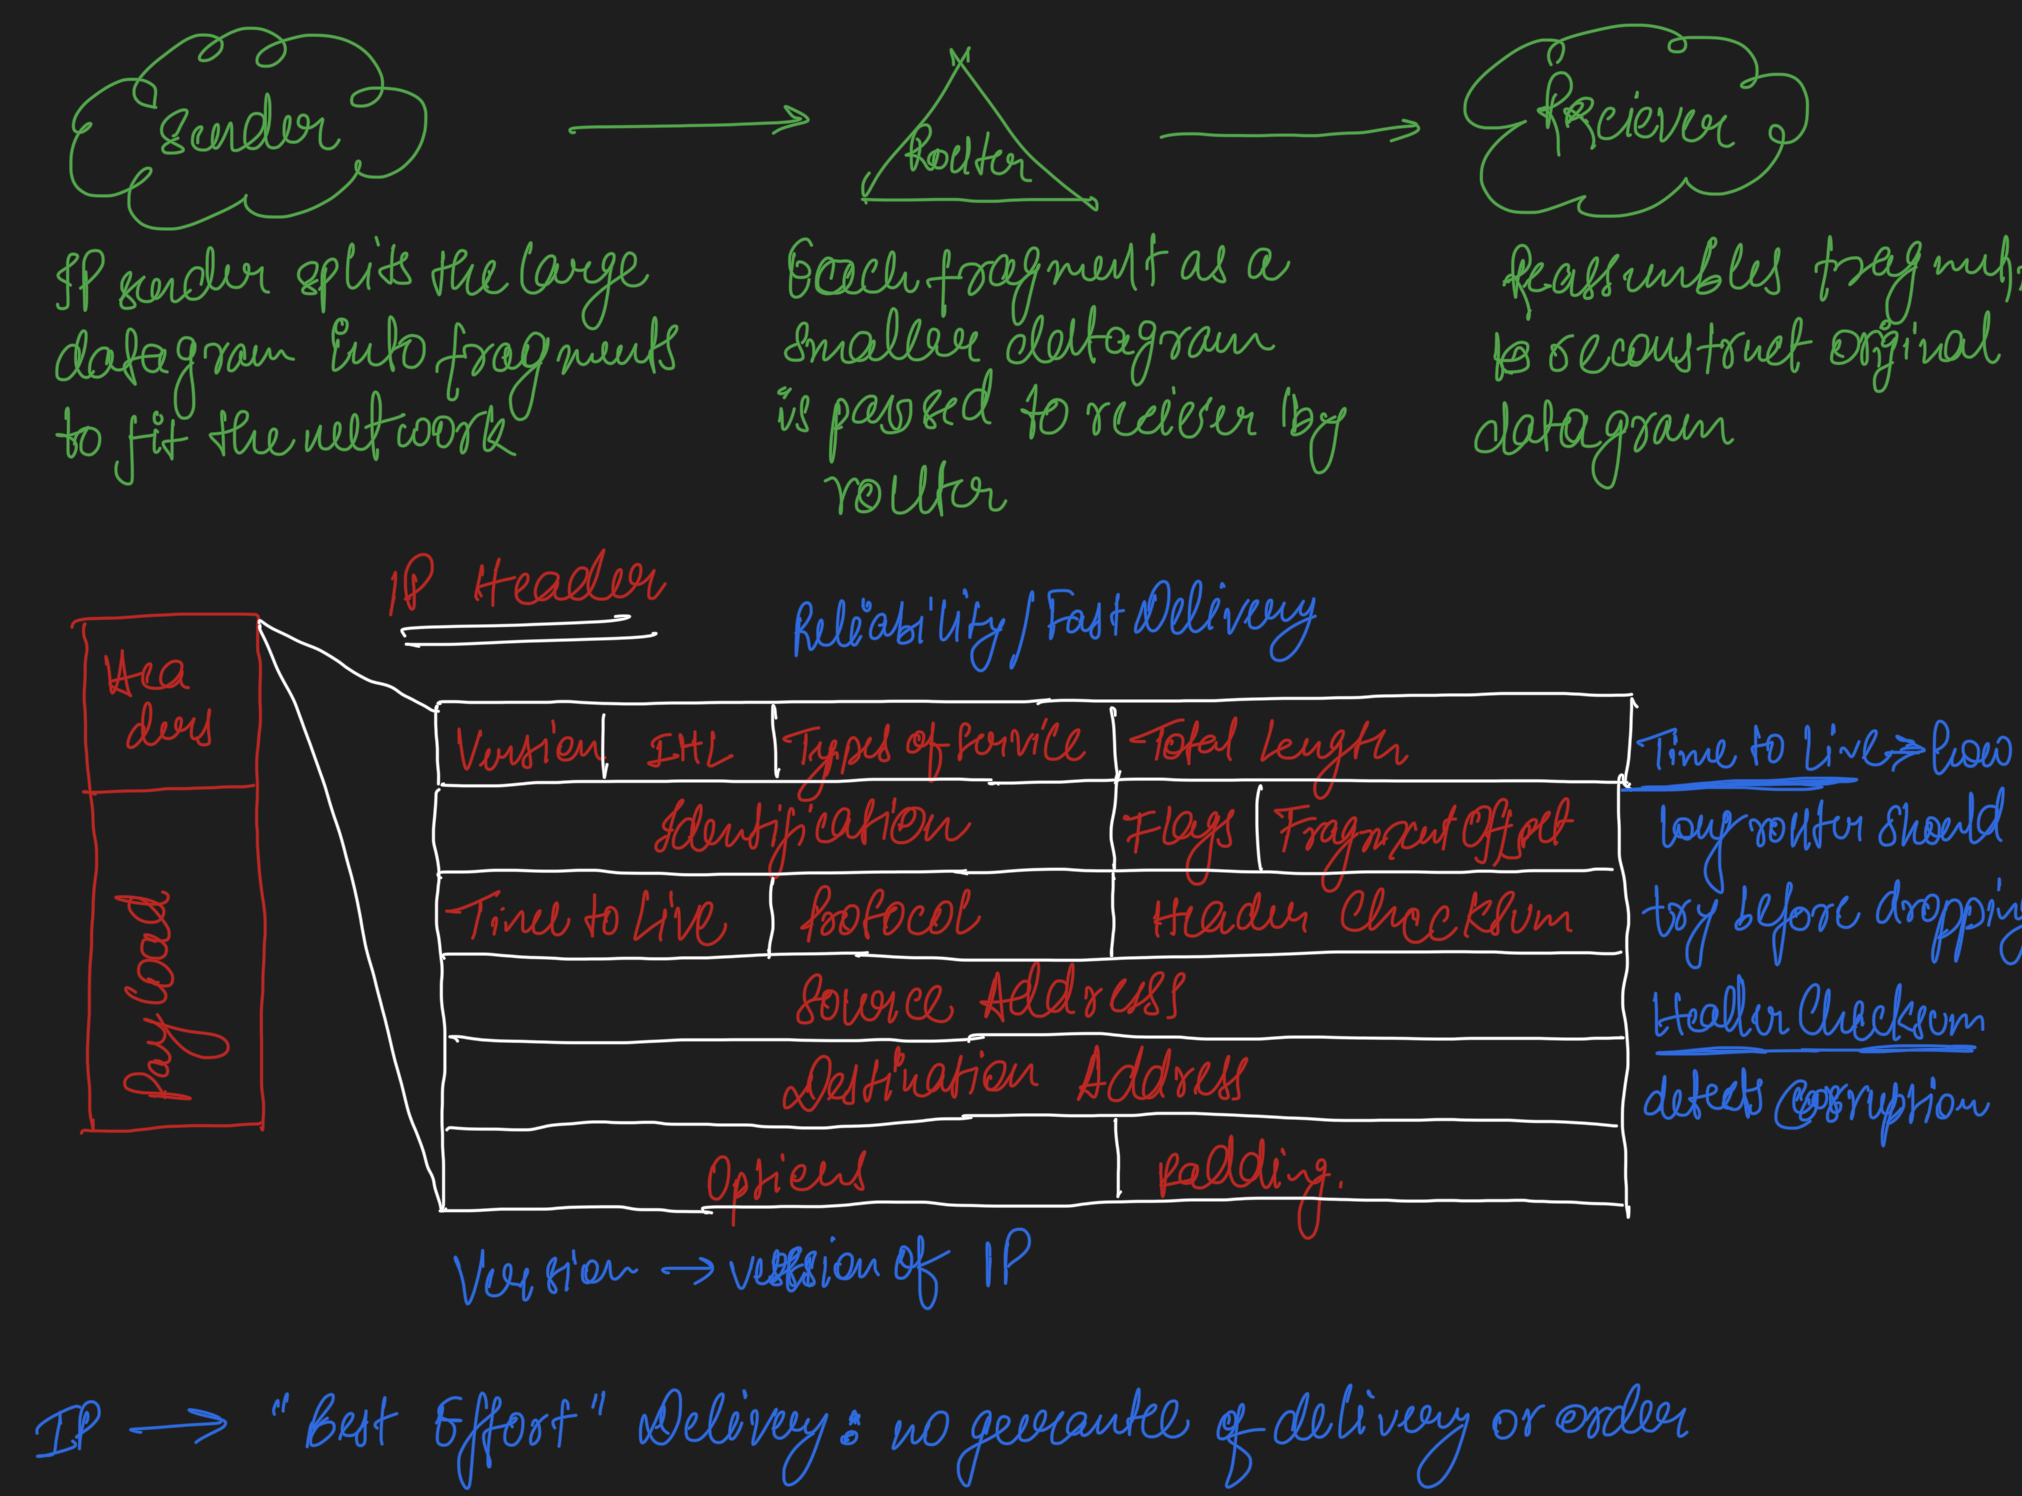 Sender
Router
Reciever
IP sender splits the large
datagram into fragments
to fit the network
Each fragment as a
smaller datagram
is passed to reciever by
router
Reassembles fragments
to reconstruct original
datagram
IP Header
Reliability/Fast Delivery
Hea
ders
Payload
Version IHL Types of Service Total Length
Identification Flags Fragment Offset
Time to Live Protocol Header Checksum
Source Address
Destination Address
Options Padding.
Time to Live → how
long router should
try before dropping
Header Checksum
detects corruption
Version → version of IP
IP → "Best Effort" Delivery: no guarantee of delivery or order